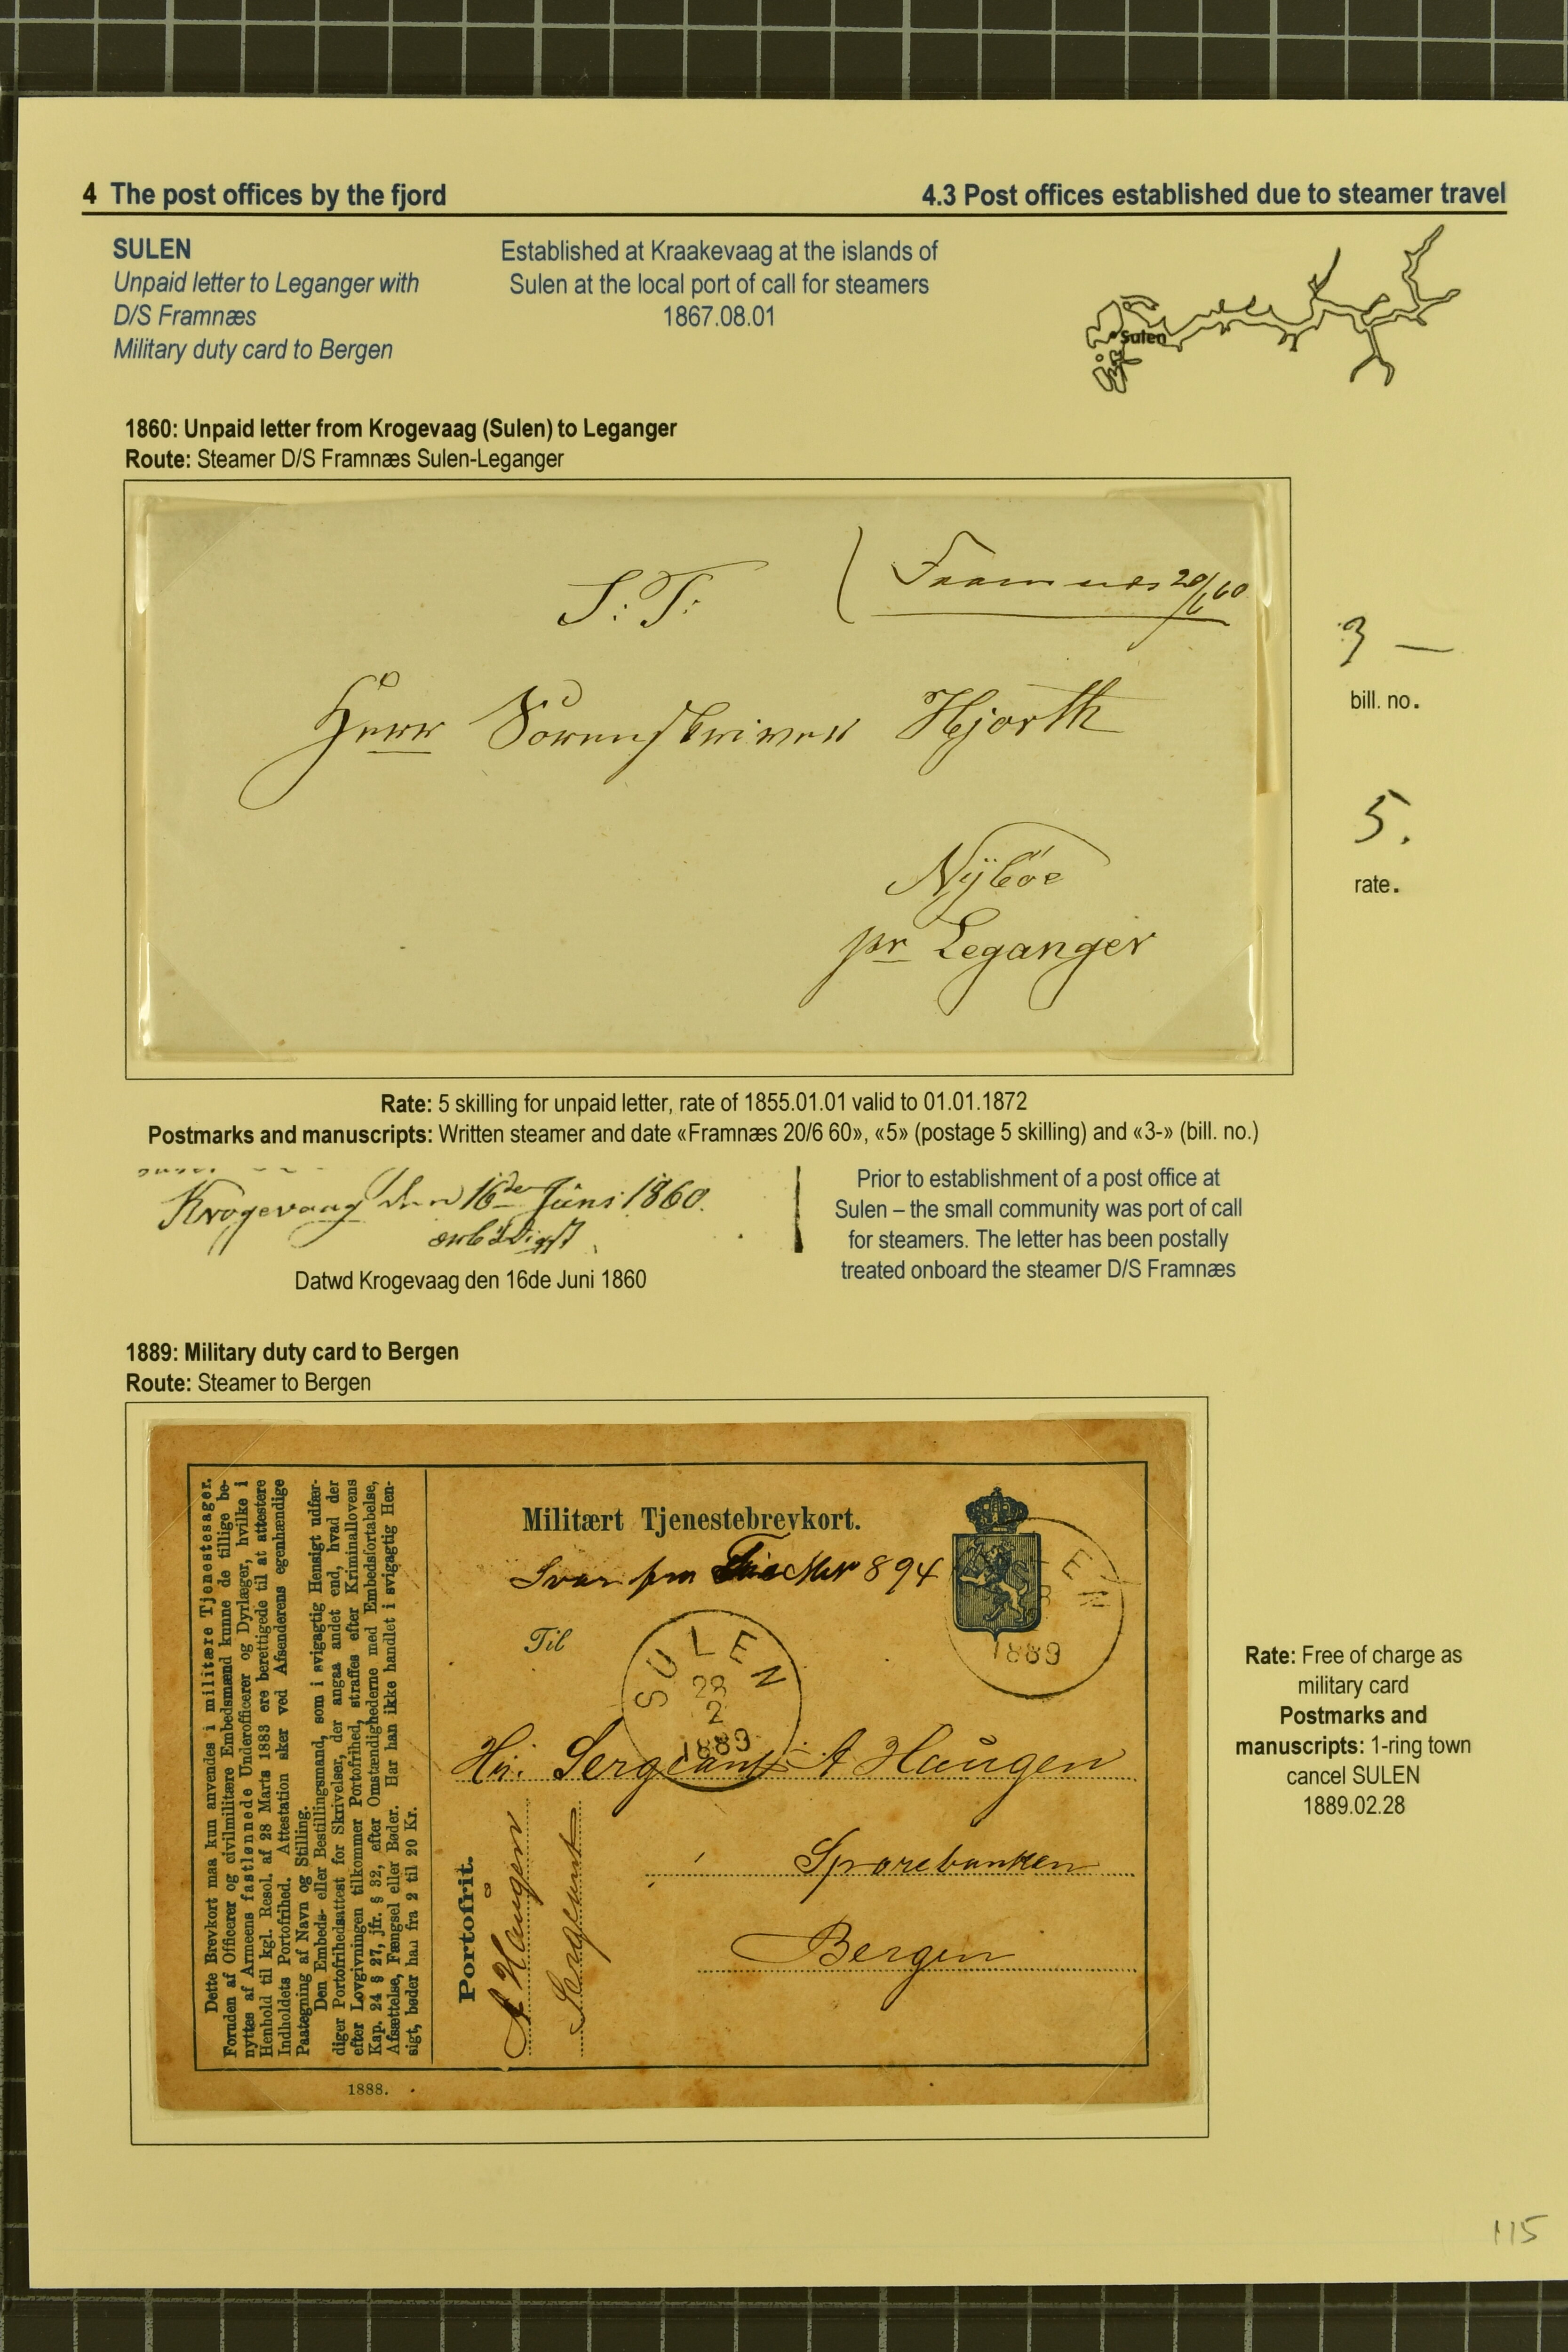 4 The post offices by the fjord
4.3 Post offices established due to steamer travel
SULEN
Unpaid letter to Leganger with
D/S Framnæs
Military duty card to Bergen
Established at Kraakevaag at the islands of
Sulen at the local port of call for steamers
1867.08.01
Sulen
1860: Unpaid letter from Krogevaag (Sulen) to Leganger
Route: Steamer D/S Framnæs Sulen-Leganger
S: T:
Framnæs 20/6 60
Herr Sorenskriver Hjorth
Nyböe
pr Leganger
3 –
bill. no.
5.
rate.
Rate: 5 skilling for unpaid letter, rate of 1855.01.01 valid to 01.01.1872
Postmarks and manuscripts: Written steamer and date «Framnæs 20/6 60», «5» (postage 5 skilling) and «3-» (bill. no.)
Krogevaag den 16de Juni 1860.
ærbödigst
Datwd Krogevaag den 16de Juni 1860
Prior to establishment of a post office at
Sulen – the small community was port of call
for steamers. The letter has been postally
treated onboard the steamer D/S Framnæs
1889: Military duty card to Bergen
Route: Steamer to Bergen
Dette Brevkort maa kun anvendes i militære Tjenestesager.
Foruden af Officerer og civilmilitære Embedsmænd kunne de tillige be-
nyttes af Armeens fastlønnede Underofficerer og Dyrlæger, hvilke i
Henhold til kgl. Resol. af 28 Marts 1883 ere berettigede til at attestere
Indholdets Portofrihed. Attestation sker ved Afsenderens egenhændige
Paategning af Navn og Stilling.
Den Embeds- eller Bestillingsmand, som i svigagtig Hensigt udfær-
diger Portofrihedsattest for Skrivelser, der angaa andet end, hvad der
efter Lovgivningen tilkommer Portofrihed, straffes efter Kriminallovens
Kap. 24 § 27, jfr. § 32, efter Omstændighederne med Embedsfortabelse,
Afsættelse, Fængsel eller Bøder. Har han ikke handlet i svigagtig Hen-
sigt, bøder han fra 2 til 20 Kr.
Militært Tjenestebrevkort.
Svar fra 894
Til
SULEN
28
2
1889
EN
1889
Hr. Sergeant A Haugen
i Sparebanken
Bergen
Portofrit.
A Haugen
Sergeant
1888.
Rate: Free of charge as
military card
Postmarks and
manuscripts: 1-ring town
cancel SULEN
1889.02.28
115